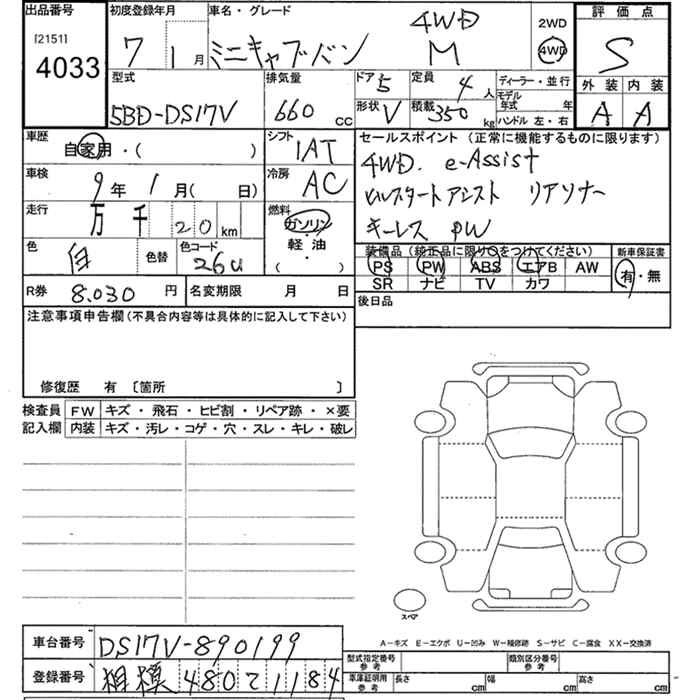 出品番号 初度登録年月 車名・グレード 評価点
[2151] 4033
7 1月 ミニキャブバン 4WD M 2WD 4WD S
型式 排気量 ドア 5 定員 4人 ディーラー・並行 外装 内装
5BD-DS17V 660 CC 形状 V 積載 350 kg モデル年式 年 ハンドル 左・右 A A
車歴 自家用・( ) シフト IAT セールスポイント (正常に機能するものに限ります)
車検 9年 1月(日) 冷房 AC 4WD. e-Assist
走行 万 千 20 km 燃料 ガソリン 軽・油 ( ) ヒルスタートアシスト リアソナー
色 白 色替 色コード 26U キーレス PW
装備品 (純正品に限り○をつけてください) 新車保証書
PS PW ABS エアB AW 有・無
SR ナビ TV カワ
R券 8.030 円 名変期限 月 日 後日品
注意事項申告欄(不具合内容等は具体的に記入して下さい)
修復歴 有 〔箇所 〕
検査員 FW キズ・飛石・ヒビ割・リペア跡・×要
記入欄 内装 キズ・汚レ・コゲ・穴・スレ・キレ・破レ
スペア
A-キズ E-エクボ U-凹み W-補修跡 S-サビ C-腐食 XX-交換済
車台番号 DS17V-890199
登録番号 相模 480 21184
型式指定番号 参考 類別区分番号 参考
車庫証明用 参考 長さ cm 幅 cm 高さ cm